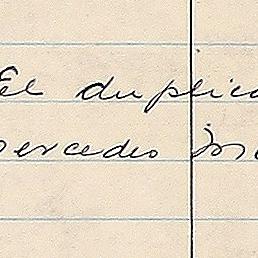 El duplica
ercedes